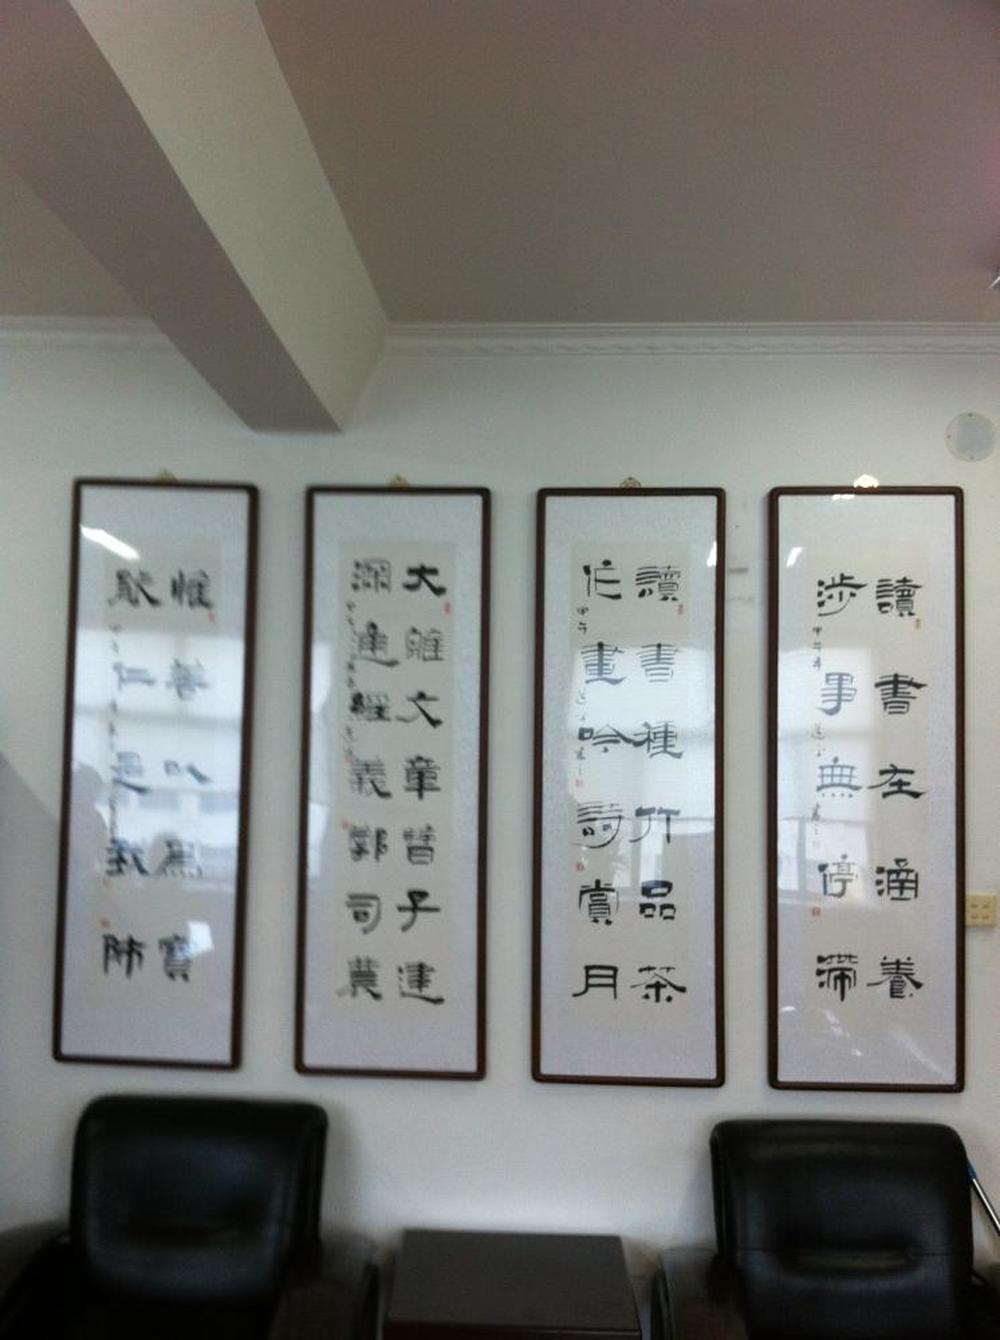 讀書在涵養
涉事無停滯
甲午
讀書種竹品茶
作畫吟詩賞月
甲午
大雅文章曹子建
深達經義鄭司農
惟善以為寶
仁是我師